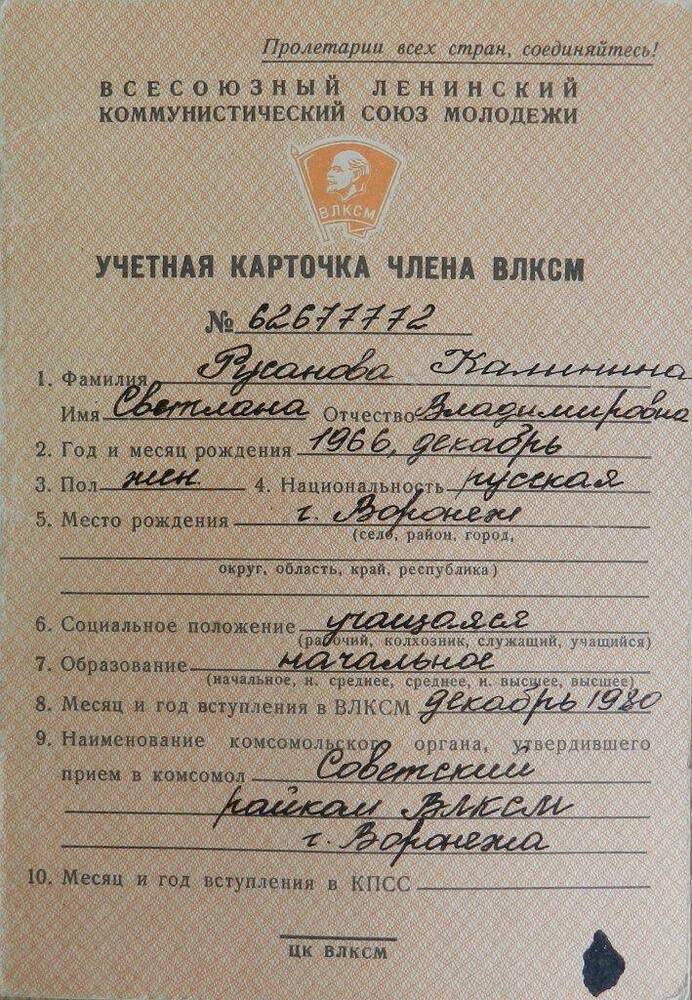 Пролетарии всех стран, соединяйтесь!
ВСЕСОЮЗНЫЙ ЛЕНИНСКИЙ
КОММУНИСТИЧЕСКИЙ СОЮЗ МОЛОДЕЖИ
ВЛКСМ
УЧЕТНАЯ КАРТОЧКА ЧЛЕНА ВЛКСМ
№ 62677772
1. Фамилия Русанова Калинина
Имя Светлана Отчество Владимировна
2. Год и месяц рождения 1966, декабрь
3. Пол жен. 4. Национальность русская
5. Место рождения г. Воронеж
(село, район, город,
округ, область, край, республика)
6. Социальное положение учащаяся
(рабочий, колхозник, служащий, учащийся)
7. Образование начальное
(начальное, н. среднее, среднее, н. высшее, высшее)
8. Месяц и год вступления в ВЛКСМ декабрь 1980
9. Наименование комсомольского органа, утвердившего
прием в комсомол Советский
райком ВЛКСМ
г. Воронежа
10. Месяц и год вступления в КПСС
ЦК ВЛКСМ